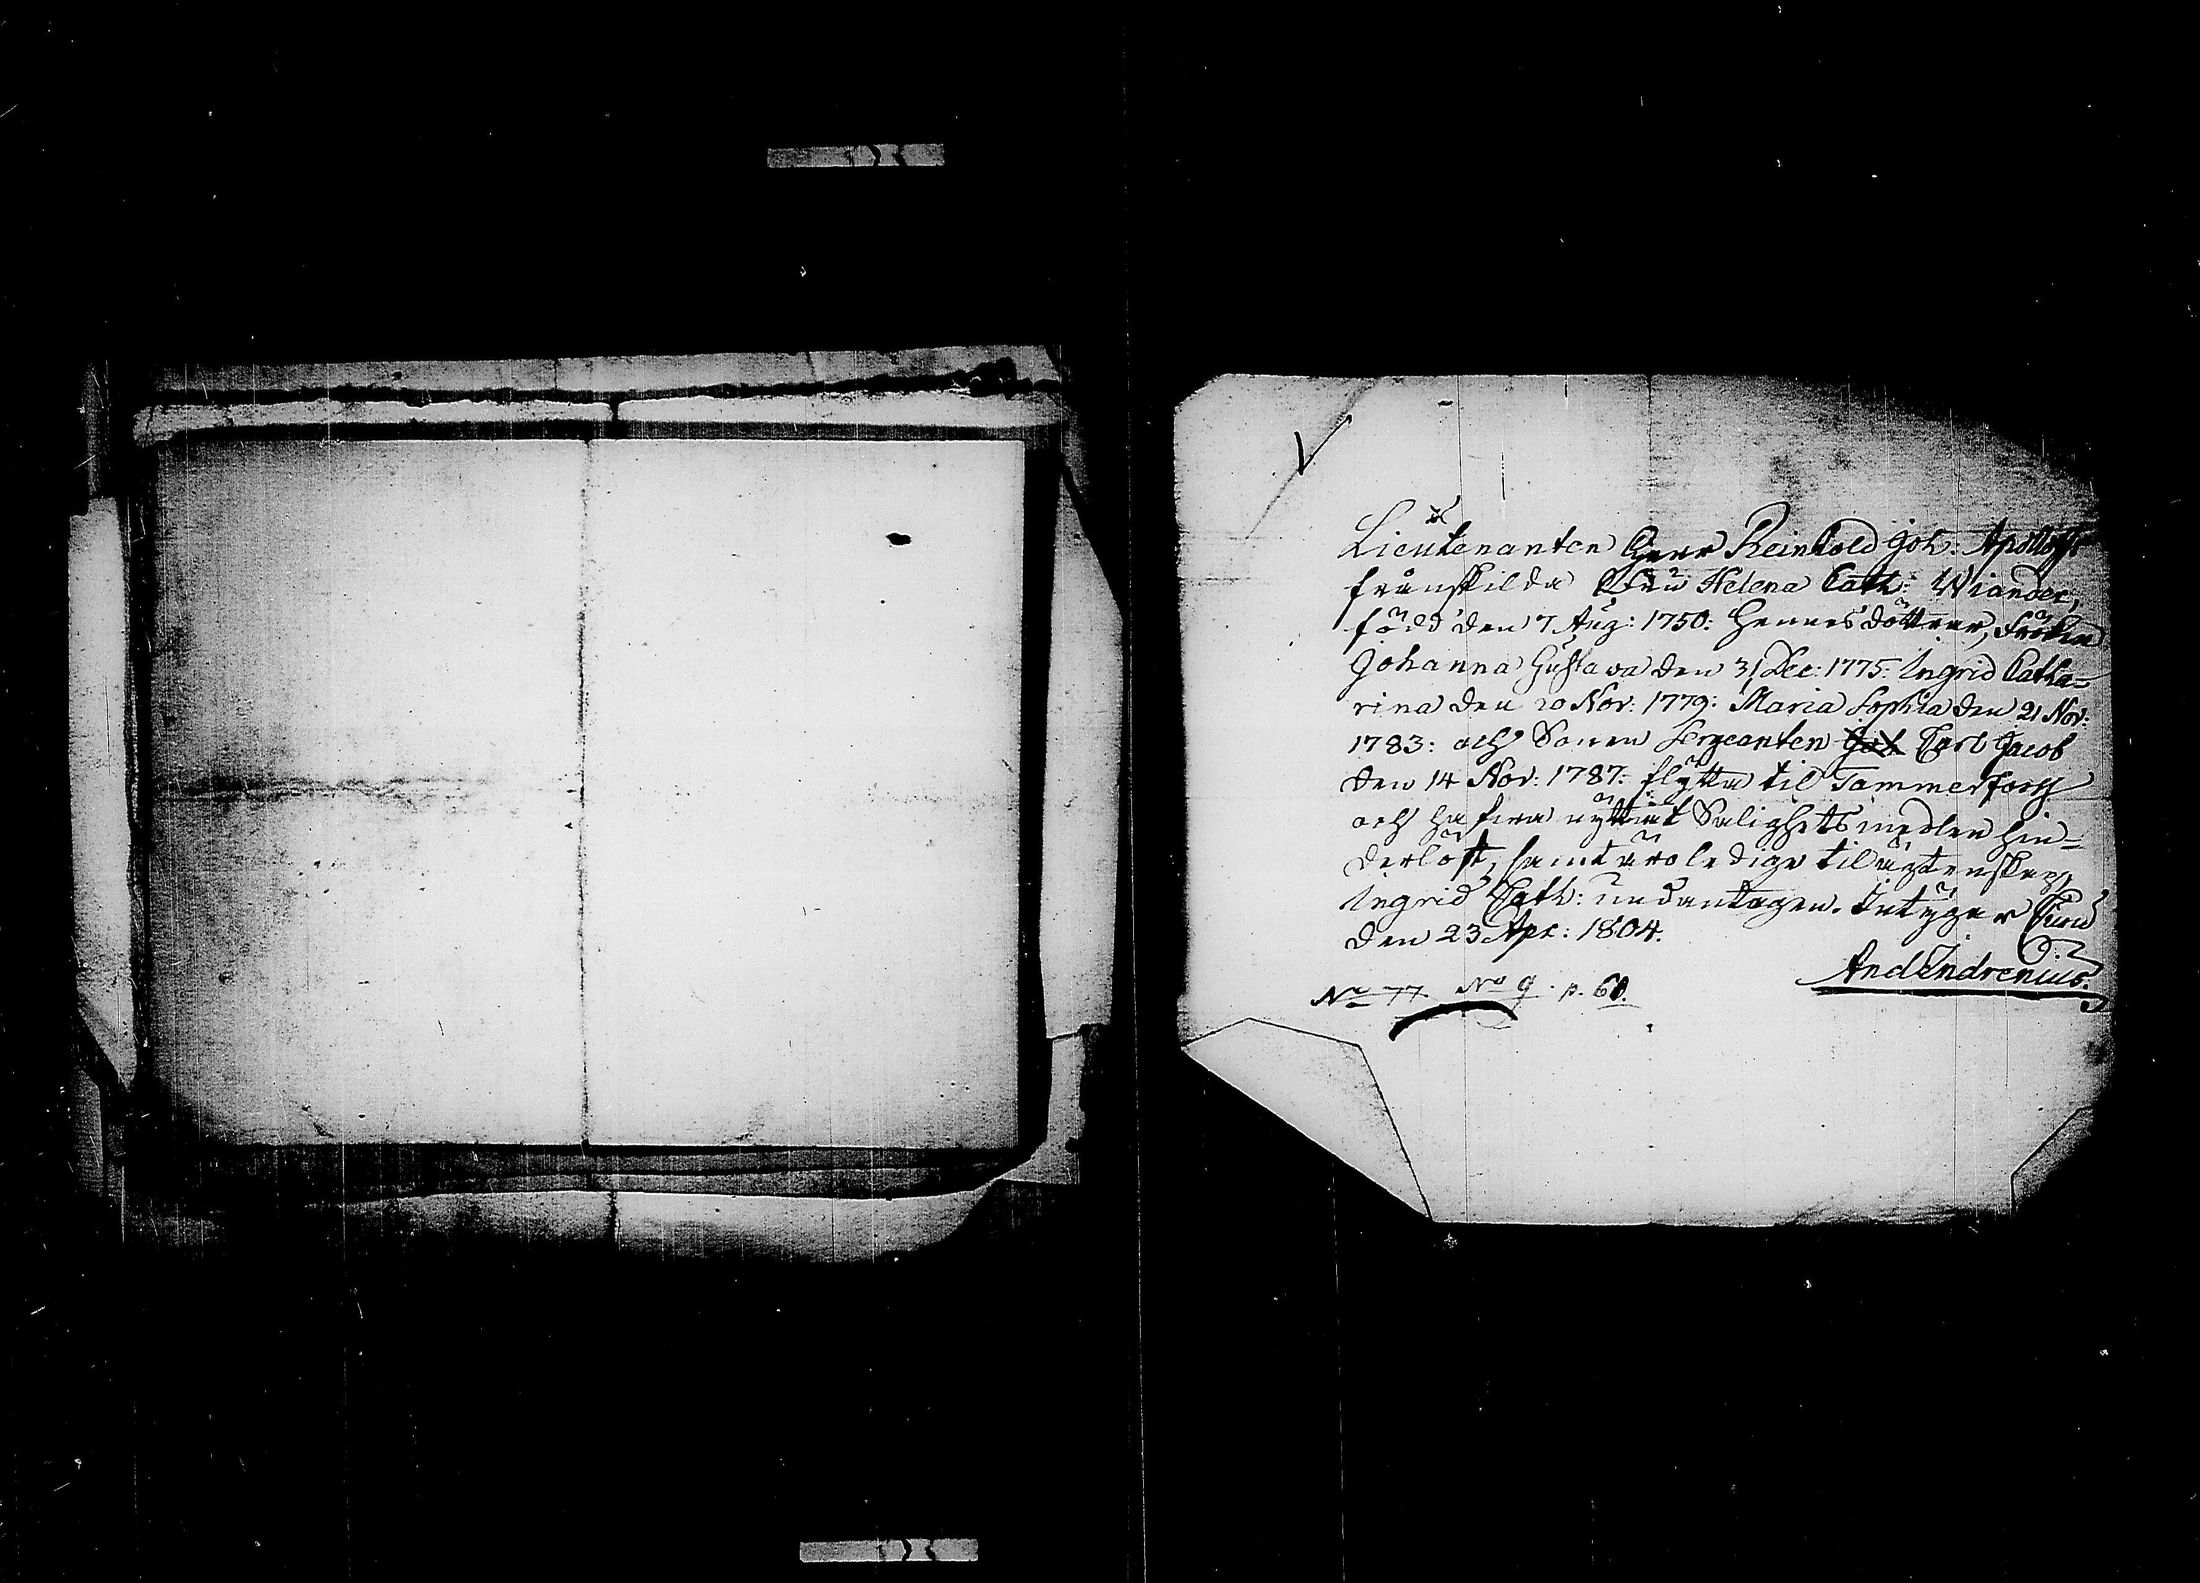 Lieutenanten Herr Reinhold Joh: Apolloffs
frånskilda Fru Helena Cath: Wiander,
född den 7 Aug: 1750: Hennes döttrar, Fröknar
Johanna Gustava den 31 Dec: 1775. Ingrid Catha-
rina den 20 Nov: 1779: Maria Sophia den 21 Nov:
1783: och Sonen Sergeanten Carl Jacob
den 14 Nov: 1787: flytta til Tammerfors
och hafva nyttiat Salighets medlen hin-
derlöst, samt äro ledige til ägtenskap,
Ingrid Cath: undantagen. Intygar
den 23 Apr: 1804.
And Indrenius.
No 77. No 9. p. 60.